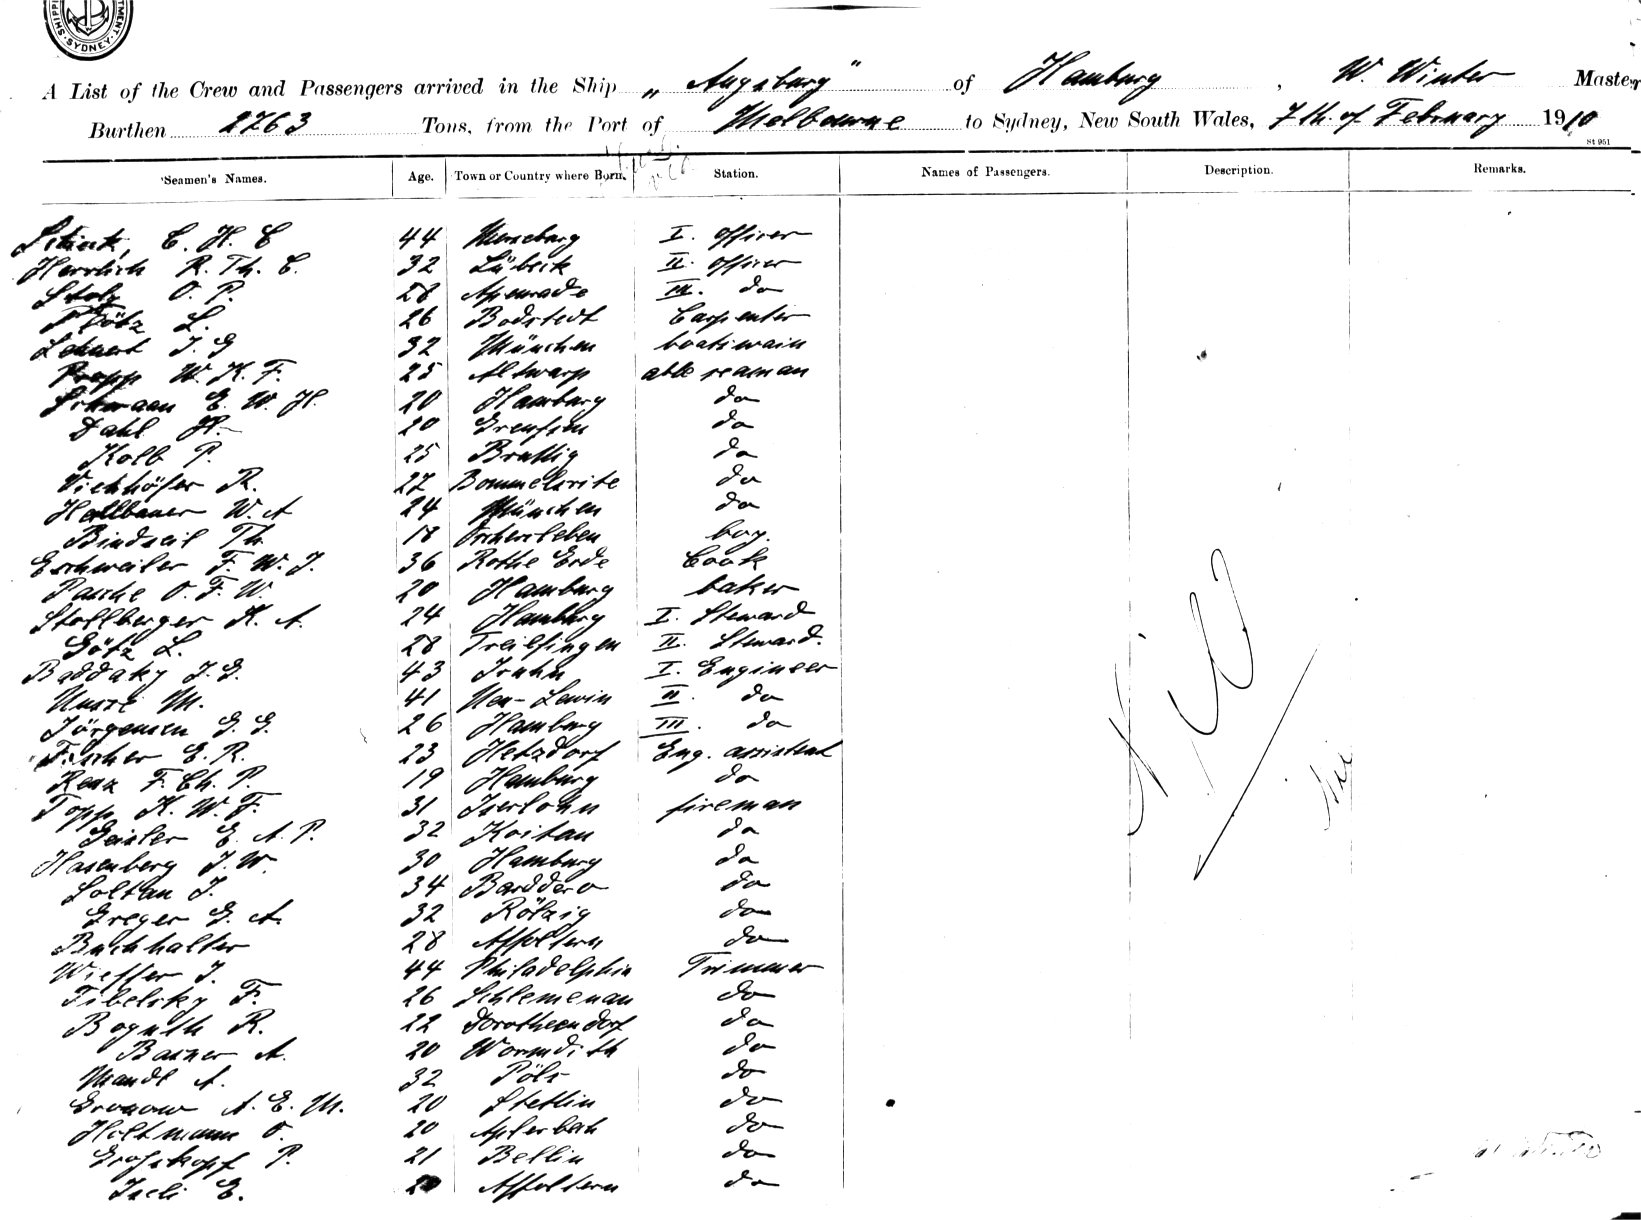 SYDNEY
A List of the Crew and Passengers arrived in the Ship „ Augsburg " of Hamburg , W. Winter Master
Burthen 2763 Tons, from the Port of Melbourne to Sydney, New South Wales, 7th. of February 1910
St 951
Seamen's Names. Age. Town or Country where Born. Station. Names of Passengers. Description. Remarks.
C. H. C 44 Merseburg I. officer
Herrlich R. Th. C. 32 Lübeck II. officer
Stolz O. P. 28 Apenrade III. do
Plötz L. 26 Bodstedt Carpenter
J. G 32 München boatswain
Propp W. K. F. 25 Altwarp able seaman
E. W. H. 20 Hamburg do
Dahl H. 20 do
Kolb P. 25 Bruttig do
Viehhöfer R. 27 Bommelsvite do
W. A 24 München do
Bindseil Th 18 Oschersleben boy.
Eschweiler F. W. J. 36 Rothe Erde Cook
Pasche O. F. W. 20 Hamburg baker
Stollberger K. A. 24 Hamburg I. Steward
Götz L. 28 Treilfingen II. Steward.
Baddaky J. G. 43 I. Engineer
M. 41 Neu-Lewin II. do
Jörgensen G. G. 26 Hamburg III. do
Fischer E. R. 23 Hetzdorf Eng. assistent
Renz F. Ch. P. 19 Hamburg do
Topp K. W. F. 31 Iserlohn fireman
Geisler E. A. P. 32 Koitan do
Hasenberg J. W. 30 Hamburg do
Soltau J. 34 do
Greger G. A. 32 do
Buchhalter 28 Affoltern do
Wieffer J. 44 Philadelphia Trimmer
Tibelsky F. 26 Schlemenau do
Bogusch R. 22 Dorotheendorf do
Basner A. 20 Wormdith do
Mandl A. 32 Pöls do
Gronow A. E. M. 20 Stettin do
Holtmann O. 20 Aplerbeck do
Grosskopf P. 21 Bellin do
Iseli E. 20 Affoltern do
Nil
Nil